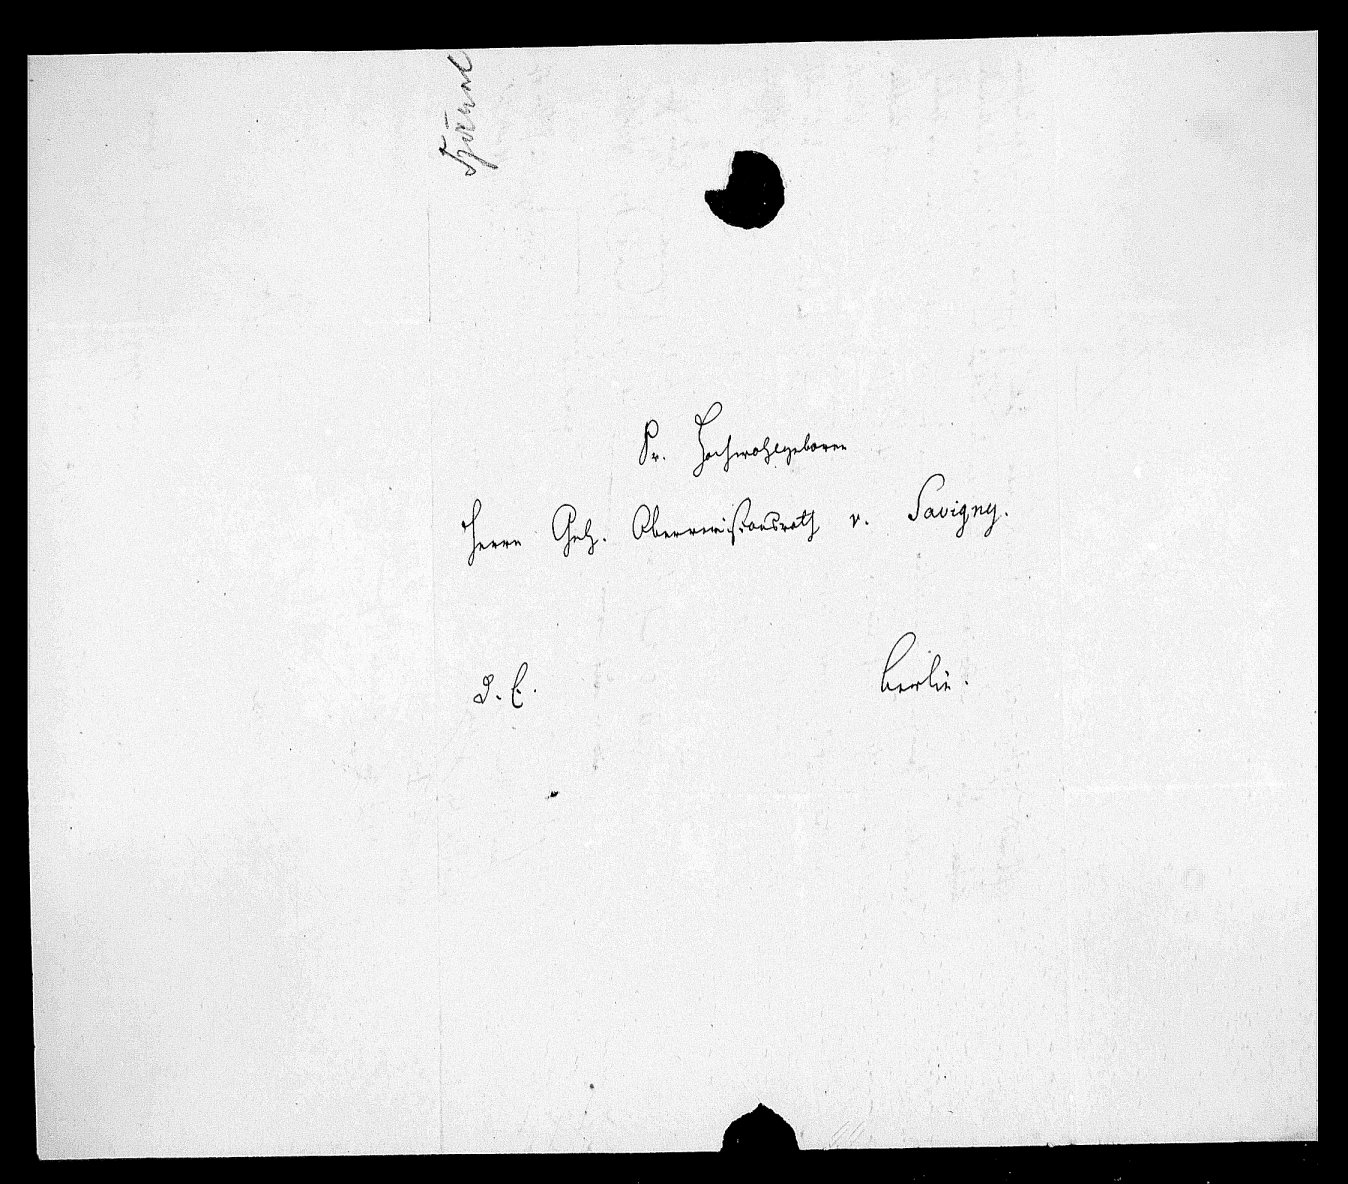 Sr. Hochwohlgeboren
Herrn Geh. Oberrevisionsrath v. Savigny.
d. E.
Berlin.